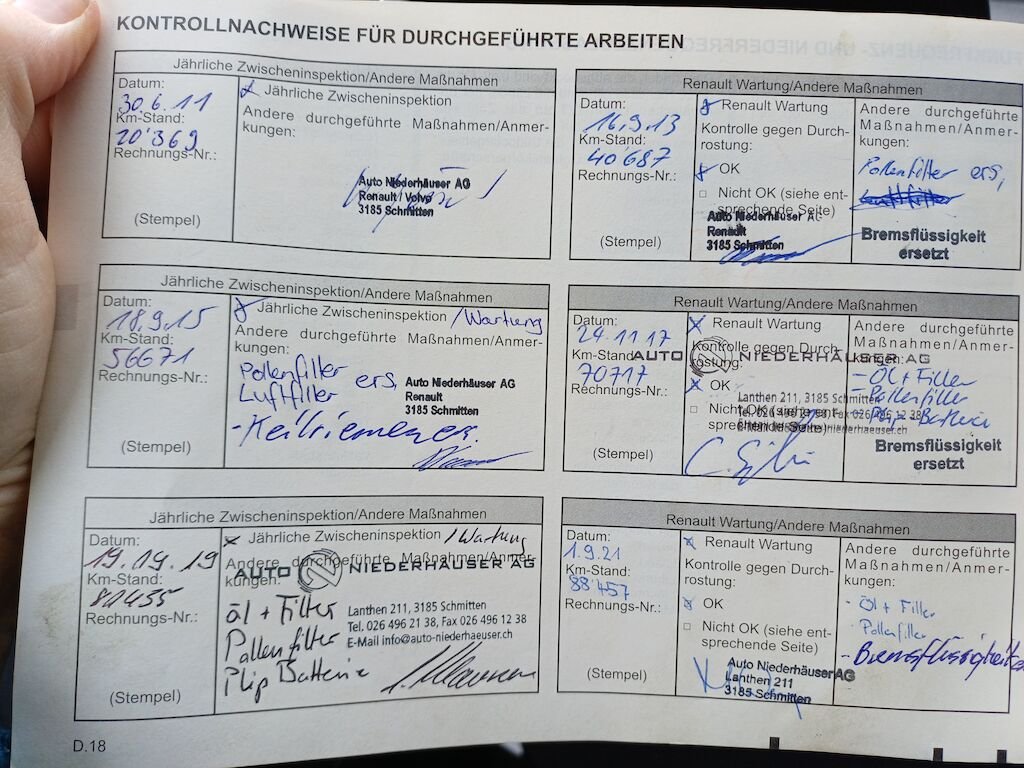 KONTROLLNACHWEISE FÜR DURCHGEFÜHRTE ARBEITEN
Jährliche Zwischeninspektion/Andere Maßnahmen
Datum:
30.6.11
Km-Stand:
20'369
Rechnungs-Nr.:
(Stempel)
Jährliche Zwischeninspektion
Andere durchgeführte Maßnahmen/Anmer-
kungen:
Auto Niederhäuser AG
Renault / Volvo
3185 Schmitten
Renault Wartung/Andere Maßnahmen
Datum:
16.9.13
Km-Stand:
40'687
Rechnungs-Nr.:
(Stempel)
Renault Wartung
Kontrolle gegen Durch-
rostung:
OK
Nicht OK (siehe ent-
sprechende Seite)
Auto Niederhäuser AG
Renault
3185 Schmitten
Andere durchgeführte
Maßnahmen/Anmer-
kungen:
Pollenfilter ers,
Bremsflüssigkeit
ersetzt
Jährliche Zwischeninspektion/Andere Maßnahmen
Datum:
18.9.15
Km-Stand:
56671
Rechnungs-Nr.:
(Stempel)
Jährliche Zwischeninspektion /Wartung
Andere durchgeführte Maßnahmen/Anmer-
kungen:
Pollenfilter
Luftfilter ers,
- Keilriemen ers.
Auto Niederhäuser AG
Renault
3185 Schmitten
Renault Wartung/Andere Maßnahmen
Datum:
24.11.17
Km-Stand:
70717
Rechnungs-Nr.:
(Stempel)
Renault Wartung
Kontrolle gegen Durch-
rostung:
OK
Nicht OK (siehe ent-
sprechende Seite)
AUTO NIEDERHÄUSER AG
Lanthen 211, 3185 Schmitten
Tel. 026 496 21 38, Fax 026 496 12 38
Andere durchgeführte
Maßnahmen/Anmer-
kungen:
- Öl + Filter
- Pollenfilter
Batterie
Bremsflüssigkeit
ersetzt
Jährliche Zwischeninspektion/Andere Maßnahmen
Datum:
19.09.19
Km-Stand:
81455
Rechnungs-Nr.:
(Stempel)
Jährliche Zwischeninspektion /Wartung
Andere durchgeführte Maßnahmen/Anmer-
kungen:
AUTO NIEDERHÄUSER AG
Lanthen 211, 3185 Schmitten
Tel. 026 496 21 38, Fax 026 496 12 38
E-Mail info@auto-niederhaeuser.ch
öl + Filter
Pollenfilter
Plip Batterie
Renault Wartung/Andere Maßnahmen
Datum:
1.9.21
Km-Stand:
88'457
Rechnungs-Nr.:
(Stempel)
Renault Wartung
Kontrolle gegen Durch-
rostung:
OK
Nicht OK (siehe ent-
sprechende Seite)
Auto Niederhäuser AG
Lanthen 211
3185 Schmitten
Andere durchgeführte
Maßnahmen/Anmer-
kungen:
- Öl + Filter
- Pollenfilter
- Bremsflüssigkeit
D.18